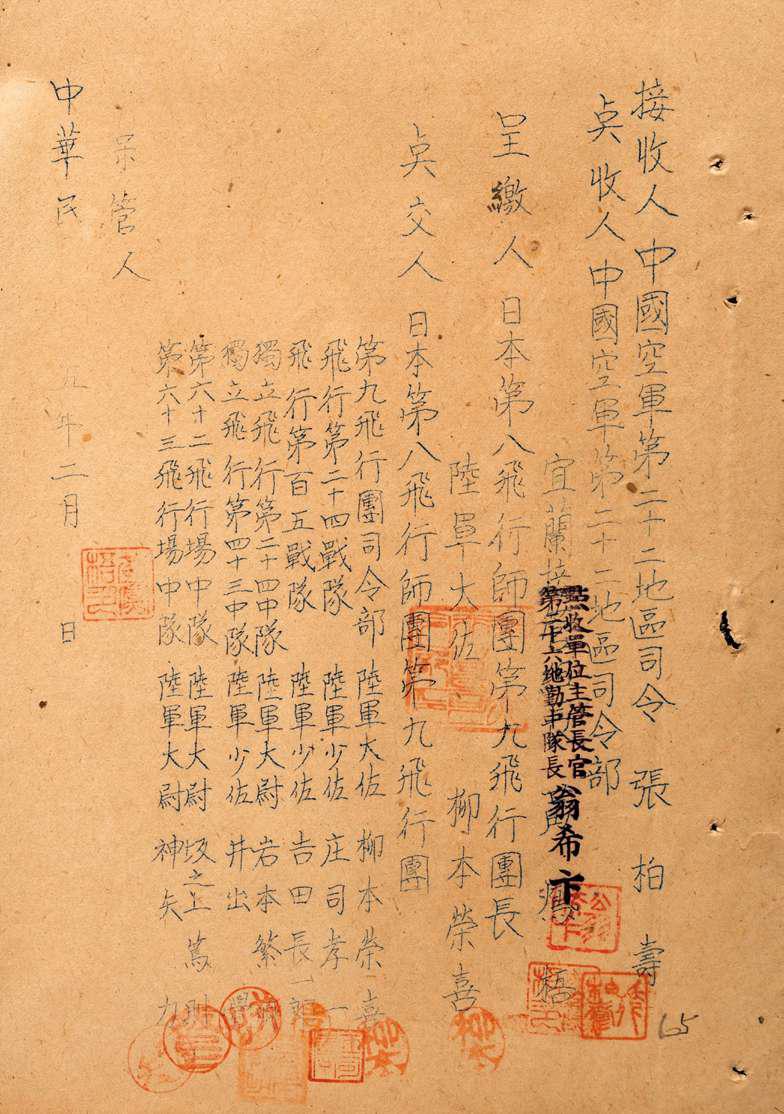 接收人 中國空軍第二十二地區司令 張柏壽
点收人 中國空軍第二十二地區司令部
宜蘭 鳳梧
點收單位主管長官
第二十六地勤中隊長 翁希卞
呈繳人 日本第八飛行師團第九飛行團長
陸軍大佐 柳本榮喜
点交人 日本第八飛行師團第九飛行團
第九飛行團司令部 陸軍大佐 柳本榮喜
飛行第二十四戰隊 陸軍少佐 庄司孝一
飛行第百五戰隊 陸軍少佐 吉田長一郎
獨立飛行第二十四中隊 陸軍大尉 岩本繁
獨立飛行第四十三中隊 陸軍少佐 井出
第六十二飛行場中隊 陸軍大尉 坂之上篤則
第六十三飛行場中隊 陸軍大尉 神矢
呆管人
中華民 五年二月 日
柳本
柳本
65